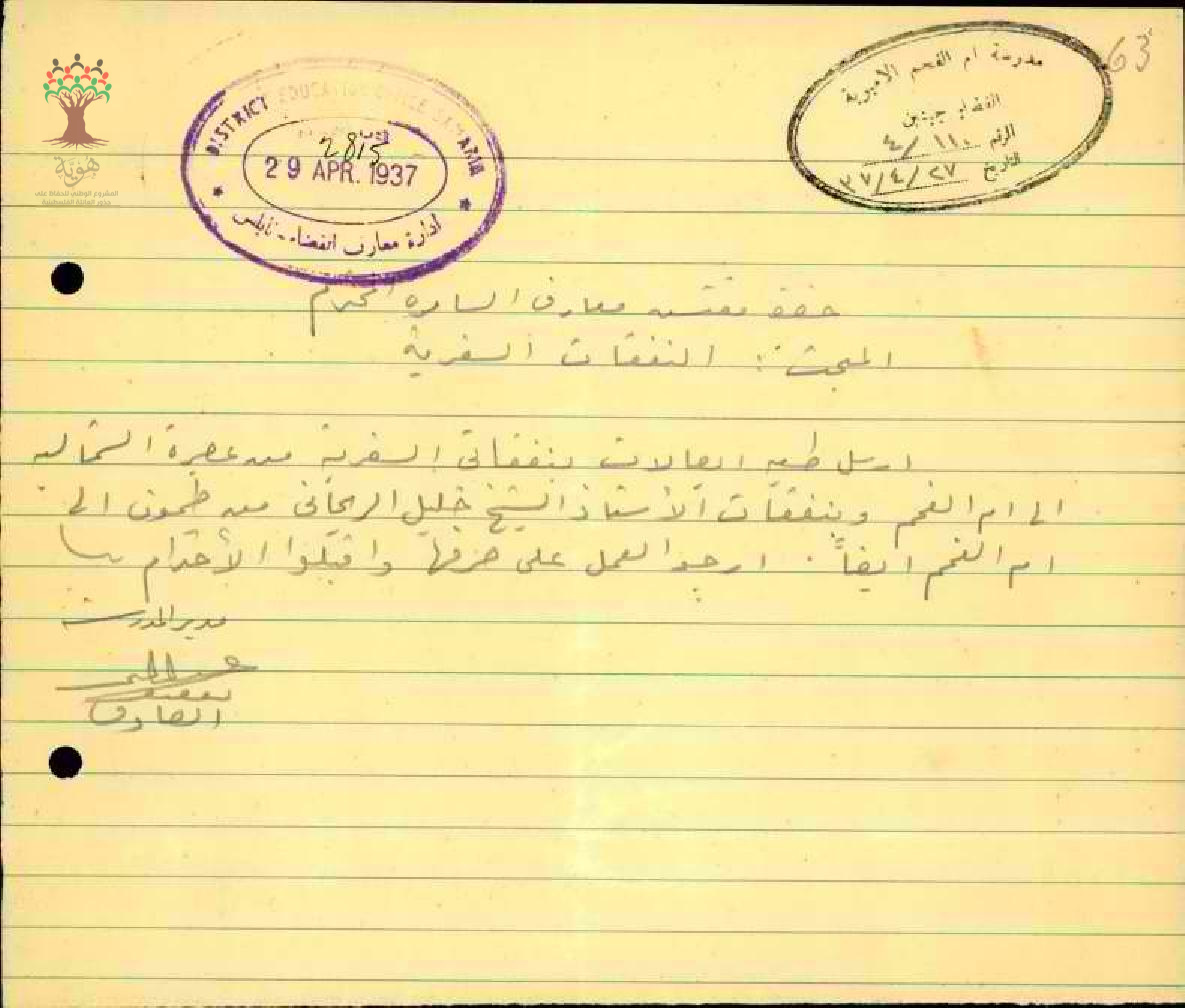 63
مدرسة ام الفحم الاميرية
القضاء جنين
الرقم ١١٠/٤
التاريخ ٣٧/٤/٢٧
DISTRICT EDUCATION OFFICE SAMARIA
2815
29 APR. 1937
ادارة معارف القضاء - نابلس
هوية
المشروع الوطني للحفاظ على
جذور العائلة الفلسطينية
حضرة مفتش معارف السامرة المحترم
المبحث : النفقات السفرية
ارسل طيه ايصالات بنفقاتي السفرية من عصيرة الشمالية
الى ام الفحم وبنفقات الأستاذ الشيخ خليل الريحاني من طمون الى
ام الفحم ايضاً . ارجو العمل على صرفها واقبلوا الأحترام
مدير المدرسة